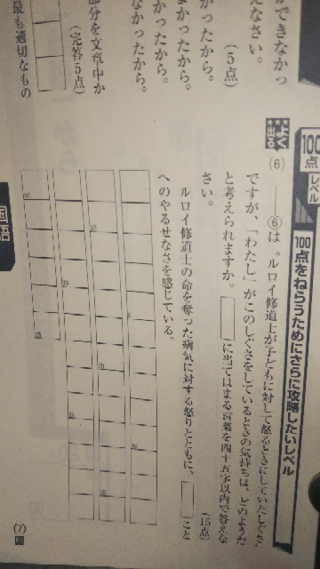 100点 レベル
100点をねらうためにさらに攻略したいレベル
よく出る
(6) ――⑥は、ルロイ修道士が子どもに対して怒るときにしていたしぐさ
ですが、「わたし」がこのしぐさをしているときの気持ちは、どのようだ
と考えられますか。□に当てはまる言葉を四十五字以内で答えな
さい。
(15点)
ルロイ修道士の命を奪った病気に対する怒りとともに、□こと
へのやるせなさを感じている。
45
(7)
ができなかっ
えなさい。
(5点)
かったから。
まよかったから。
かったから。
なかったから。
部分を文章中か
(完答5点)
最も適切なもの
国語